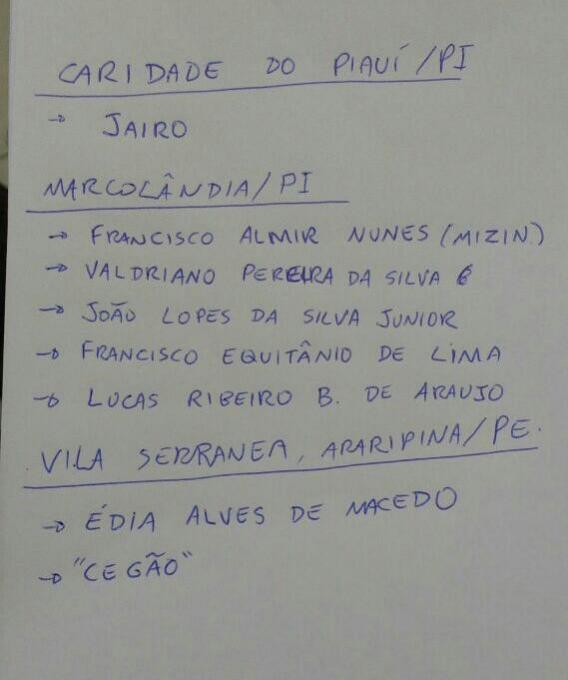 CARIDADE DO PIAUÍ/PI
→ JAIRO
MARCOLÂNDIA/PI
→ FRANCISCO ALMIR NUNES (MIZIN)
→ VALDRIANO PEREIRA DA SILVA
→ JOÃO LOPES DA SILVA JUNIOR
→ FRANCISCO EQUITÂNIO DE LIMA
→ LUCAS RIBEIRO B. DE ARAUJO
VILA SERRANEA, ARARIPINA/PE.
→ ÉDIA ALVES DE MACEDO
→ "CEGÃO"